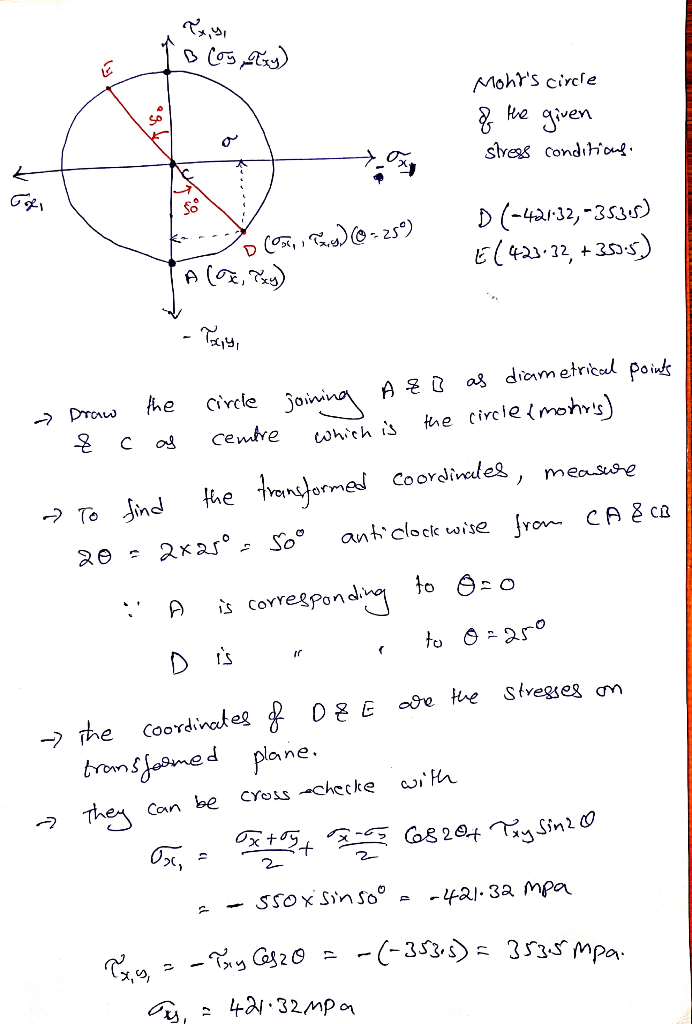 τx₁y₁
B (σy, -τxy)
E
50°
σ
C
50°
σx₁
-σx₁
D (σx₁, τx₁y₁) (θ=25°)
A (σx, τxy)
- τx₁y₁
Mohr's circle
& the given
stress conditions.
D (-421.32, -353.5)
E (423.32, +353.5)
→ Draw the circle joining A & B as diametrical points
& C as centre which is the circle (mohr's)
→ To find the transformed coordinates, measure
2θ = 2×25° = 50° anticlockwise from CA & CB
∵ A is corresponding to θ=0
D is " " to θ=25°
→ The coordinates of D & E are the stresses on
transformed plane.
→ They can be cross checke with
σx₁ = σx+σy/2 + σx-σy/2 Cos2θ + τxy Sin2θ
= - 550 x sin50° = -421.32 Mpa
τx₁y₁ = - τxy Cos2θ = -(-353.5) = 353.5 Mpa.
σy₁ = 421.32 Mpa